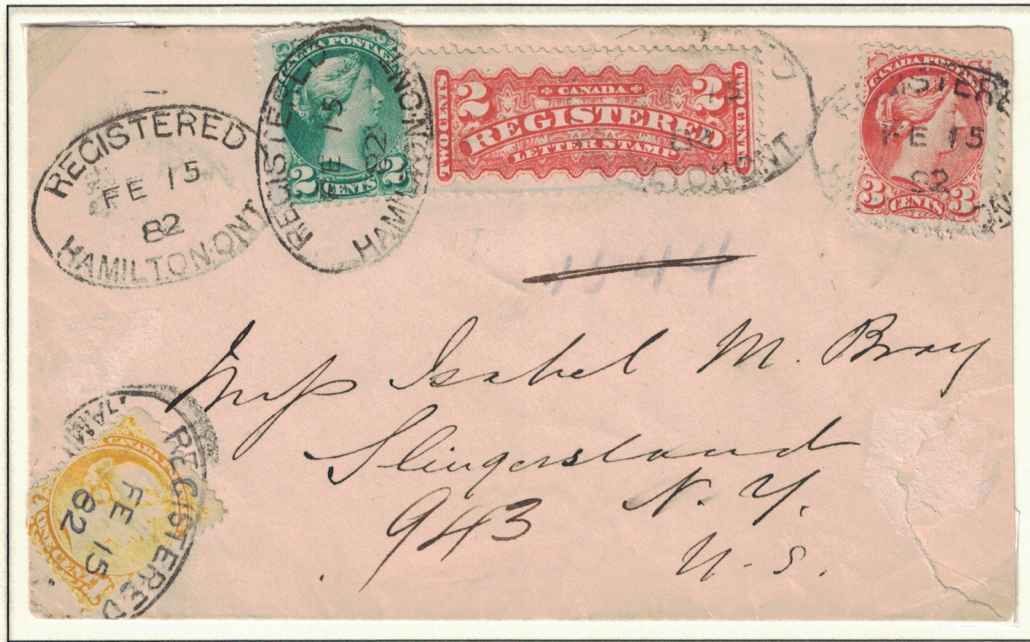 REGISTERED
FE 15
82
HAMILTON.ONT
CANADA POSTAGE
2 CENTS 2
REGISTERED
FE 15
82
HAMILTON.ONT
2 CANADA 2
TWO CENTS REGISTERED TWO CENTS
LETTER STAMP
82
ONT
CANADA POSTAGE
3 CENTS 3
REGISTERED
FE 15
82
1544
Miss Isabel M. Bray
Slingersland
943 N.Y.
U.S.
CANADA
REGISTERED
FE 15
82
HAM